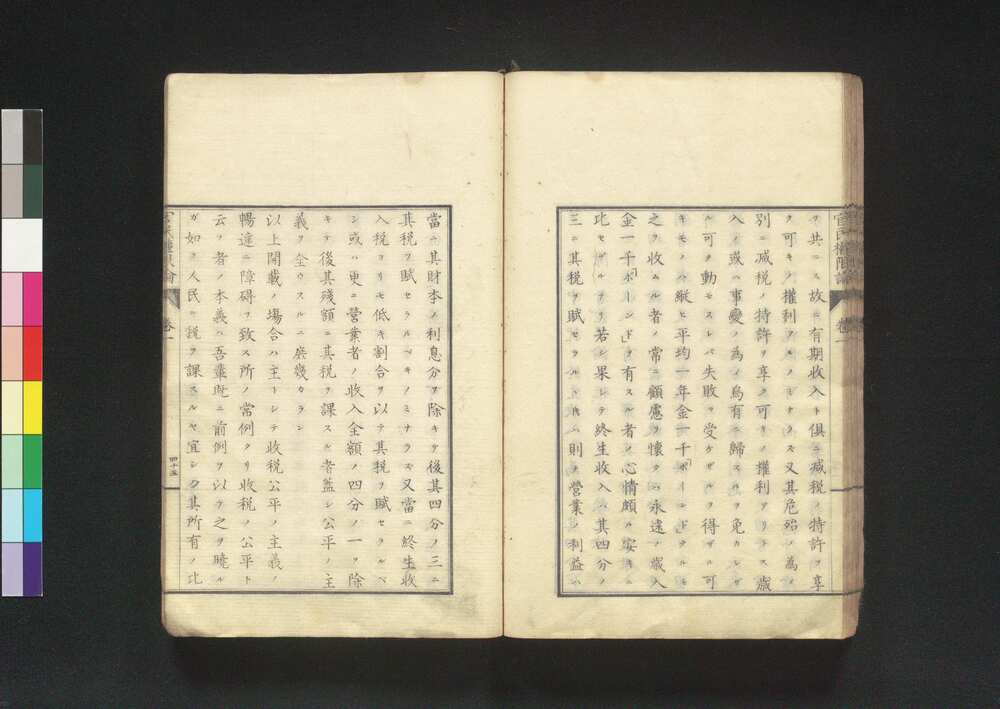 官民權限論
卷一
ヲ共ニス故ニ有期收入ト俱ニ減税ノ特許ヲ享
ク可キノ權利アルノミナラス又其危殆ノ為メ
別ニ減税ノ特許ヲ享ク可キノ權利アリトス歳
入ノ或ハ事變ノ為メ烏有ニ歸スルヲ免カレザ
ル可ク動モスレバ失敗ヲ受ケザルヲ得ザル可
キモノハ縱ヒ平均一年金一千「ポーンド」タルモ
之ヲ收ムル者ノ常ニ顧慮ヲ懐ク ハ永遠ノ歳入
金一千「ポーンド」ヲ有スル者ノ心情頗ル安キニ
比セザルナリ若シ果シテ終生收入ハ其四分ノ
三ニ其税ヲ賦セラル 則ヲ營業ノ利益ハ
當ニ其財本ノ利息分ヲ除キテ後其四分ノ三ニ
其税ヲ賦セラルベキノミナラズ又當ニ終生收
入税ヨリモ低キ割合ヲ以テ其税ヲ賦セラルベ
シ或ハ更ニ營業者ノ收入全額ノ四分ノ一ヲ除
キテ後其殘額ニ其税ヲ課スル者蓋シ公平ノ主
義ヲ全ウスルニ庶幾カラン
以上開載ノ場合ハ主トシテ收税公平ノ主義ノ
暢達ニ障碍ヲ致ス所ノ常例タリ收税ノ公平ト
云フ者ノ本義ハ吾輩既ニ前例ヲ以テ之ヲ曉ル
ガ如ク人民ニ税ヲ課スルヤ宜シク其所有ノ比
官民權限論
卷一
四十五